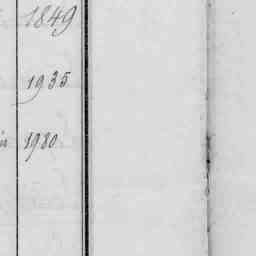 1849
1935
1980